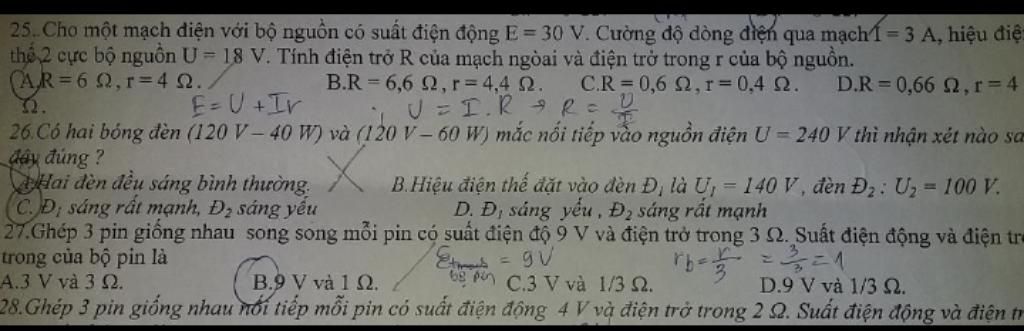 25. Cho một mạch điện với bộ nguồn có suất điện động E = 30 V. Cường độ dòng điện qua mạch I = 3 A, hiệu điệ
thế 2 cực bộ nguồn U = 18 V. Tính điện trở R của mạch ngòai và điện trở trong r của bộ nguồn.
A.R = 6 Ω , r = 4 Ω. B.R = 6,6 Ω , r = 4,4 Ω. C.R = 0,6 Ω , r = 0,4 Ω. D.R = 0,66 Ω , r = 4
Ω. E = U + Ir U = I . R → R = U/I
26.Có hai bóng đèn (120 V – 40 W) và (120 V – 60 W) mắc nối tiếp vào nguồn điện U = 240 V thì nhận xét nào sa
đây đúng ?
A.Hai đèn đều sáng bình thường. B.Hiệu điện thế đặt vào đèn Đ₁ là U₁ = 140 V , đèn Đ₂ : U₂ = 100 V.
C. Đ₁ sáng rất mạnh, Đ₂ sáng yếu D. Đ₁ sáng yếu , Đ₂ sáng rất mạnh
27.Ghép 3 pin giống nhau song song mỗi pin có suất điện độ 9 V và điện trở trong 3 Ω. Suất điện động và điện tr
trong của bộ pin là = 9V r_b = r/3 = 3/3 = 1
bộ pin
A.3 V và 3 Ω. B.9 V và 1 Ω. C.3 V và 1/3 Ω. D.9 V và 1/3 Ω.
28.Ghép 3 pin giống nhau nối tiếp mỗi pin có suất điện động 4 V và điện trở trong 2 Ω. Suất điện động và điện tr